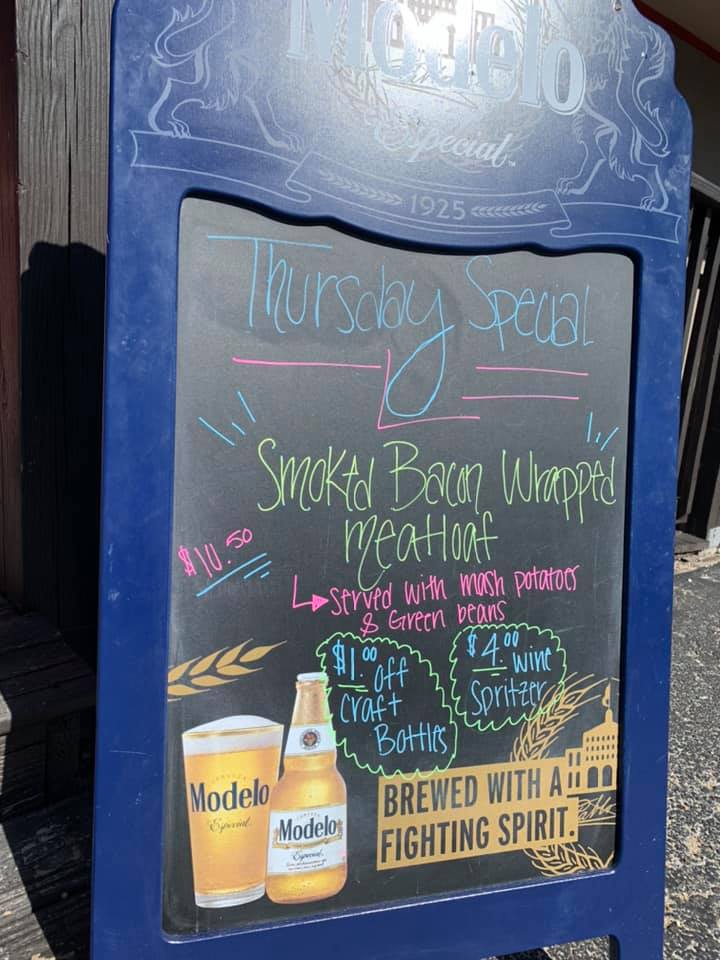 Modelo
Especial
1925
Thursday Special
Smoked Bacon Wrapped
Meatloaf
$10.50
served with mash potatoes
& Green beans
$1.00 off
craft
Bottles
$4.00 wine
Spritzer
Modelo
Especial
Modelo
Especial
BREWED WITH A
FIGHTING SPIRIT.